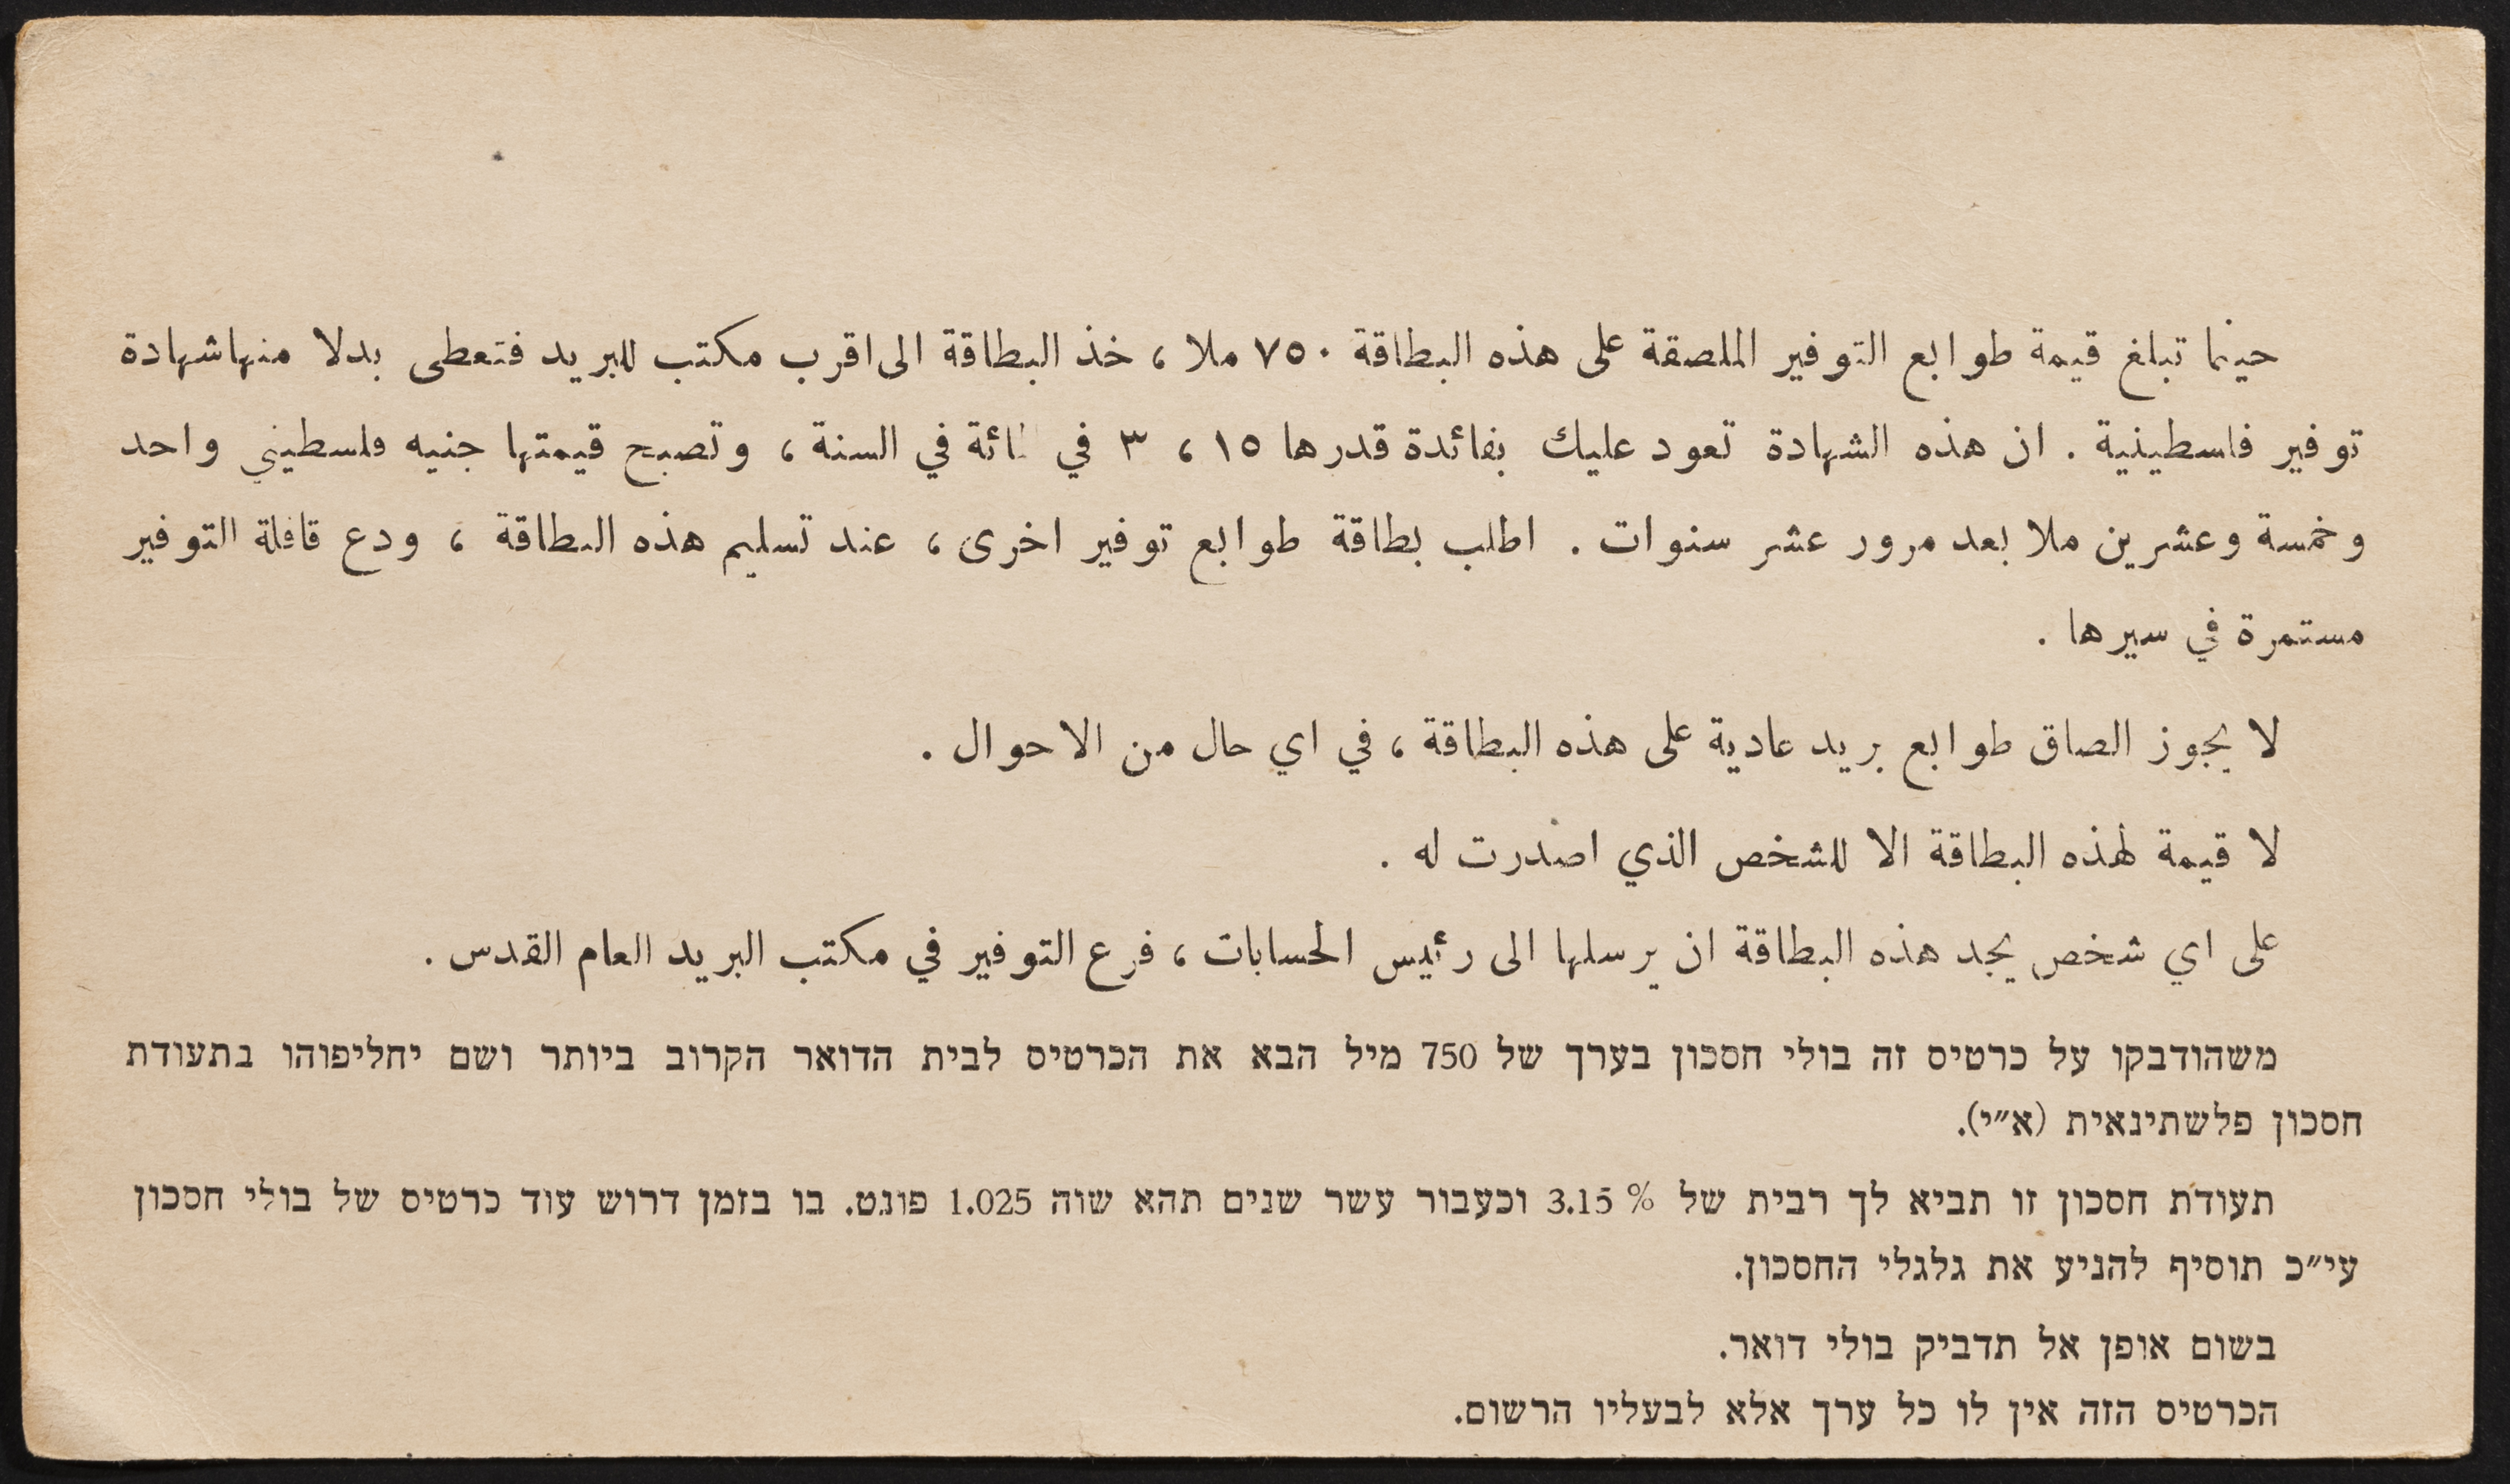 حينما تبلغ قيمة طوابع التوفير الملصقة على هذه البطاقة ٧٥٠ ملا ، خذ البطاقة الى اقرب مكتب للبريد فتعطى بدلا منها شهادة
توفير فلسطينية . ان هذه الشهادة تعود عليك بفائدة قدرها ١٥ ، ٣ في المائة في السنة ، وتصبح قيمتها جنيه فلسطيني واحد
وخمسة وعشرين ملا بعد مرور عشر سنوات . اطلب بطاقة طوابع توفير اخرى ، عند تسليم هذه البطاقة ، ودع قافلة التوفير
مستمرة في سيرها .
لا يجوز الصاق طوابع بريد عادية على هذه البطاقة ، في اي حال من الاحوال .
لا قيمة لهذه البطاقة الا للشخص الذي اصدرت له .
على اي شخص يجد هذه البطاقة ان يرسلها الى رئيس الحسابات ، فرع التوفير في مكتب البريد العام القدس .
משהודבקו על כרטיס זה בולי חסכון בערך של 750 מיל הבא את הכרטיס לבית הדואר הקרוב ביותר ושם יחליפוהו בתעודת
חסכון פלשתינאית (א״י).
תעודת חסכון זו תביא לך רבית של % 3.15 וכעבור עשר שנים תהא שוה 1.025 פונט. בו בזמן דרוש עוד כרטיס של בולי חסכון
עי״כ תוסיף להניע את גלגלי החסכון.
בשום אופן אל תדביק בולי דואר.
הכרטיס הזה אין לו כל ערך אלא לבעליו הרשום.